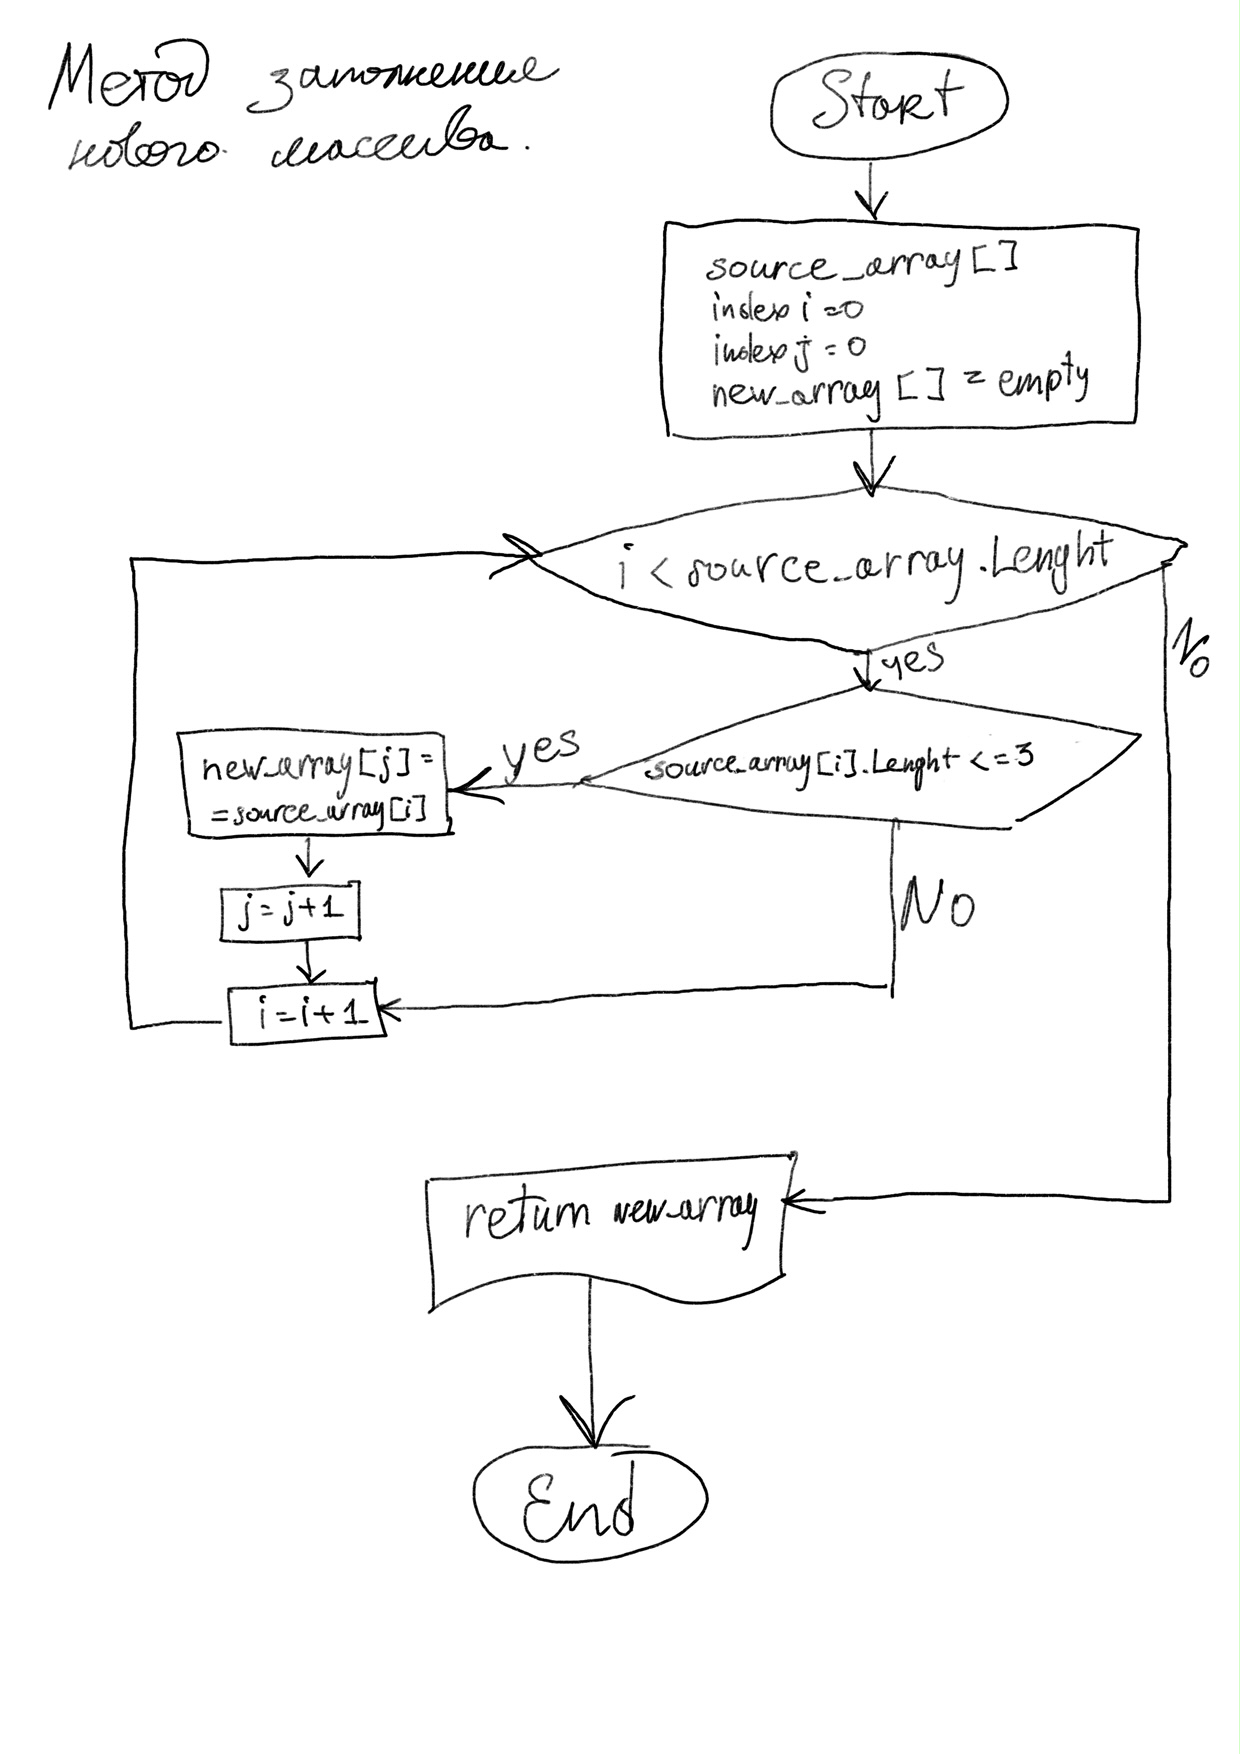 Метод заполнение
нового массива.
Start
source_array[]
index i=0
index j=0
new_array[] = empty
i < source_array.Lenght
yes
No
source_array[i].Lenght <=3
yes
new_array[j]=
=source_array[i]
No
j=j+1
i=i+1
return new_array
End